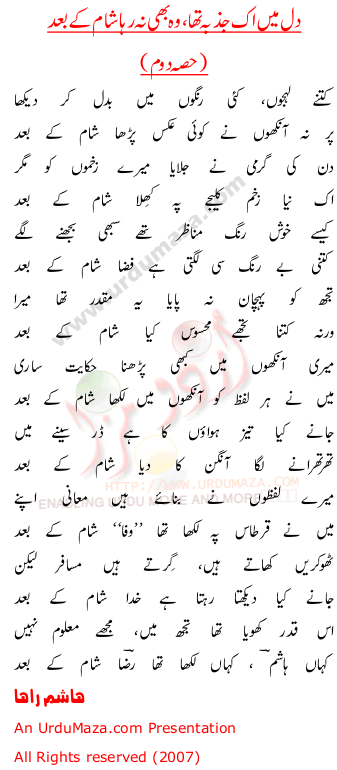 دل میں اک جذبہ تھا، وہ بھی نہ رہا شام کے بعد
(حصہ دوم)
کتنے لہجوں، کئی رنگوں میں بدل کر دیکھا
پر نہ آنکھوں نے کوئی عکس پڑھا شام کے بعد
دن کی گرمی نے جلایا میرے زخموں کو مگر
اک نیا زخم کلیجے پہ کھلا شام کے بعد
کیسے خوش رنگ مناظر تھے سبھی بجھنے لگے
کتنی بے رنگ سی لگتی ہے فضا شام کے بعد
تجھ کو پہچان نہ پایا یہ مقدر تھا میرا
ورنہ کتنا تجھے محسوس کیا شام کے بعد
میری آنکھوں میں کبھی پڑھنا حکایت ساری
میں نے ہر لفظ کو آنکھوں میں لکھا شام کے بعد
جانے کیا تیز ہواؤں کا ہے ڈر سینے میں
تھرتھرانے لگا آنگن کا دیا شام کے بعد
میرے لفظوں نے بنائے ہیں معانی اپنے
میں نے قرطاس پہ لکھا تھا ”وفا“ شام کے بعد
ٹھوکریں کھاتے ہیں، گِرتے ہیں مسافر لیکن
جانے کیا دیکھتا رہتا ہے خدا شام کے بعد
اس قدر کھویا تھا تجھ میں، مجھے معلوم نہیں
کہاں ہاشم، کہاں لکھا تھا رضا شام کے بعد
ھاشم راھا
An UrduMaza.com Presentation
All Rights reserved (2007)
www.urdumaza.com
اردو مزا
HTTP://WWW.URDUMAZA.COM
ENABLING URDU MEDIA AND MORE